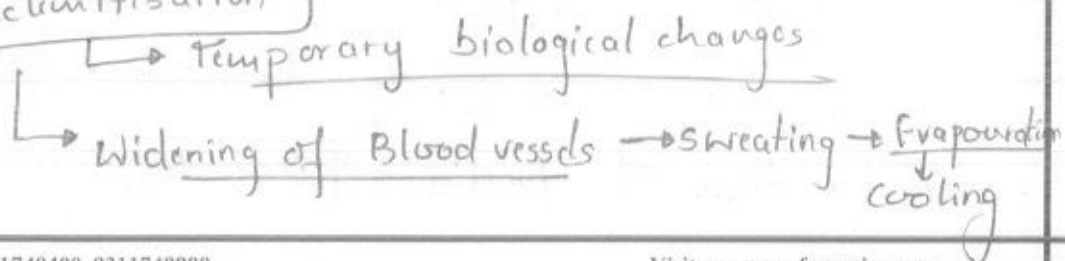 → Temporary biological changes
→ Widening of Blood vessels → Sweating → Evapouration
↓
cooling